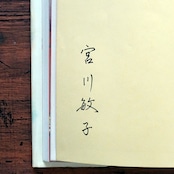 宮川敏子